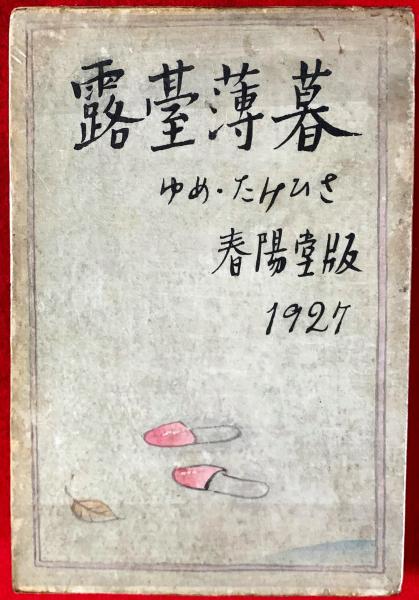 露臺薄暮
ゆめ・たけひさ
春陽堂版
1927